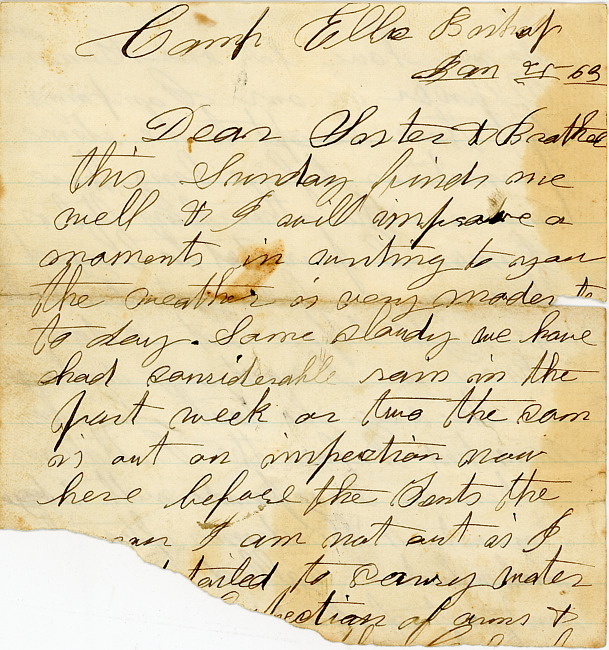 Camp Ella Bishop
Jan 25-63
Dear Sister & Brother
this Sunday finds me
well & I will improve a
moments in writing to you
the weather is very moder
to day. Some cloudy we have
had considerable rain in the
past week or two the com
is out on inspection now
here before the tents the
I am not out as I
tailed to carry water
ection of arms &